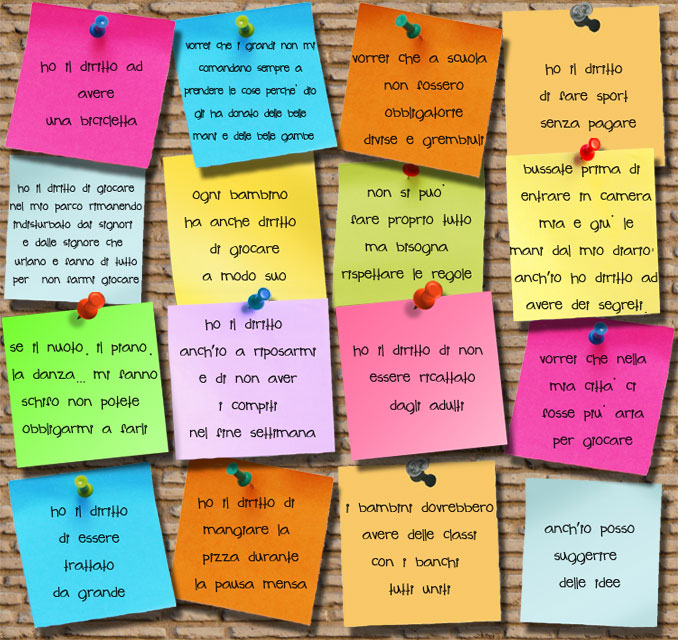 ho il diritto ad
avere
una bicicletta
vorrei che i grandi non mi
comandano sempre a
prendere le cose perche' dio
gli ha donato delle belle
mani e delle belle gambe
vorrei che a scuola
non fossero
obbligatorie
divise e grembiuli
ho il diritto
di fare sport
senza pagare
ho il diritto di giocare
nel mio parco rimanendo
indisturbato dai signori
e dalle signore che
urlano e fanno di tutto
per non farmi giocare
ogni bambino
ha anche diritto
di giocare
a modo suo
non si puo'
fare proprio tutto
ma bisogna
rispettare le regole
bussate prima di
entrare in camera
mia e giu' le
mani dal mio diario:
anch'io ho diritto ad
avere dei segreti.
se il nuoto, il piano,
la danza... mi fanno
schifo non potete
obbligarmi a farli
ho il diritto
anch'io a riposarmi
e di non aver
i compiti
nel fine settimana
ho il diritto di non
essere ricattato
dagli adulti
vorrei che nella
mia citta' ci
fosse piu' aria
per giocare
ho il diritto
di essere
trattato
da grande
ho il diritto di
mangiare la
pizza durante
la pausa mensa
i bambini dovrebbero
avere delle classi
con i banchi
tutti uniti
anch'io posso
suggerire
delle idee